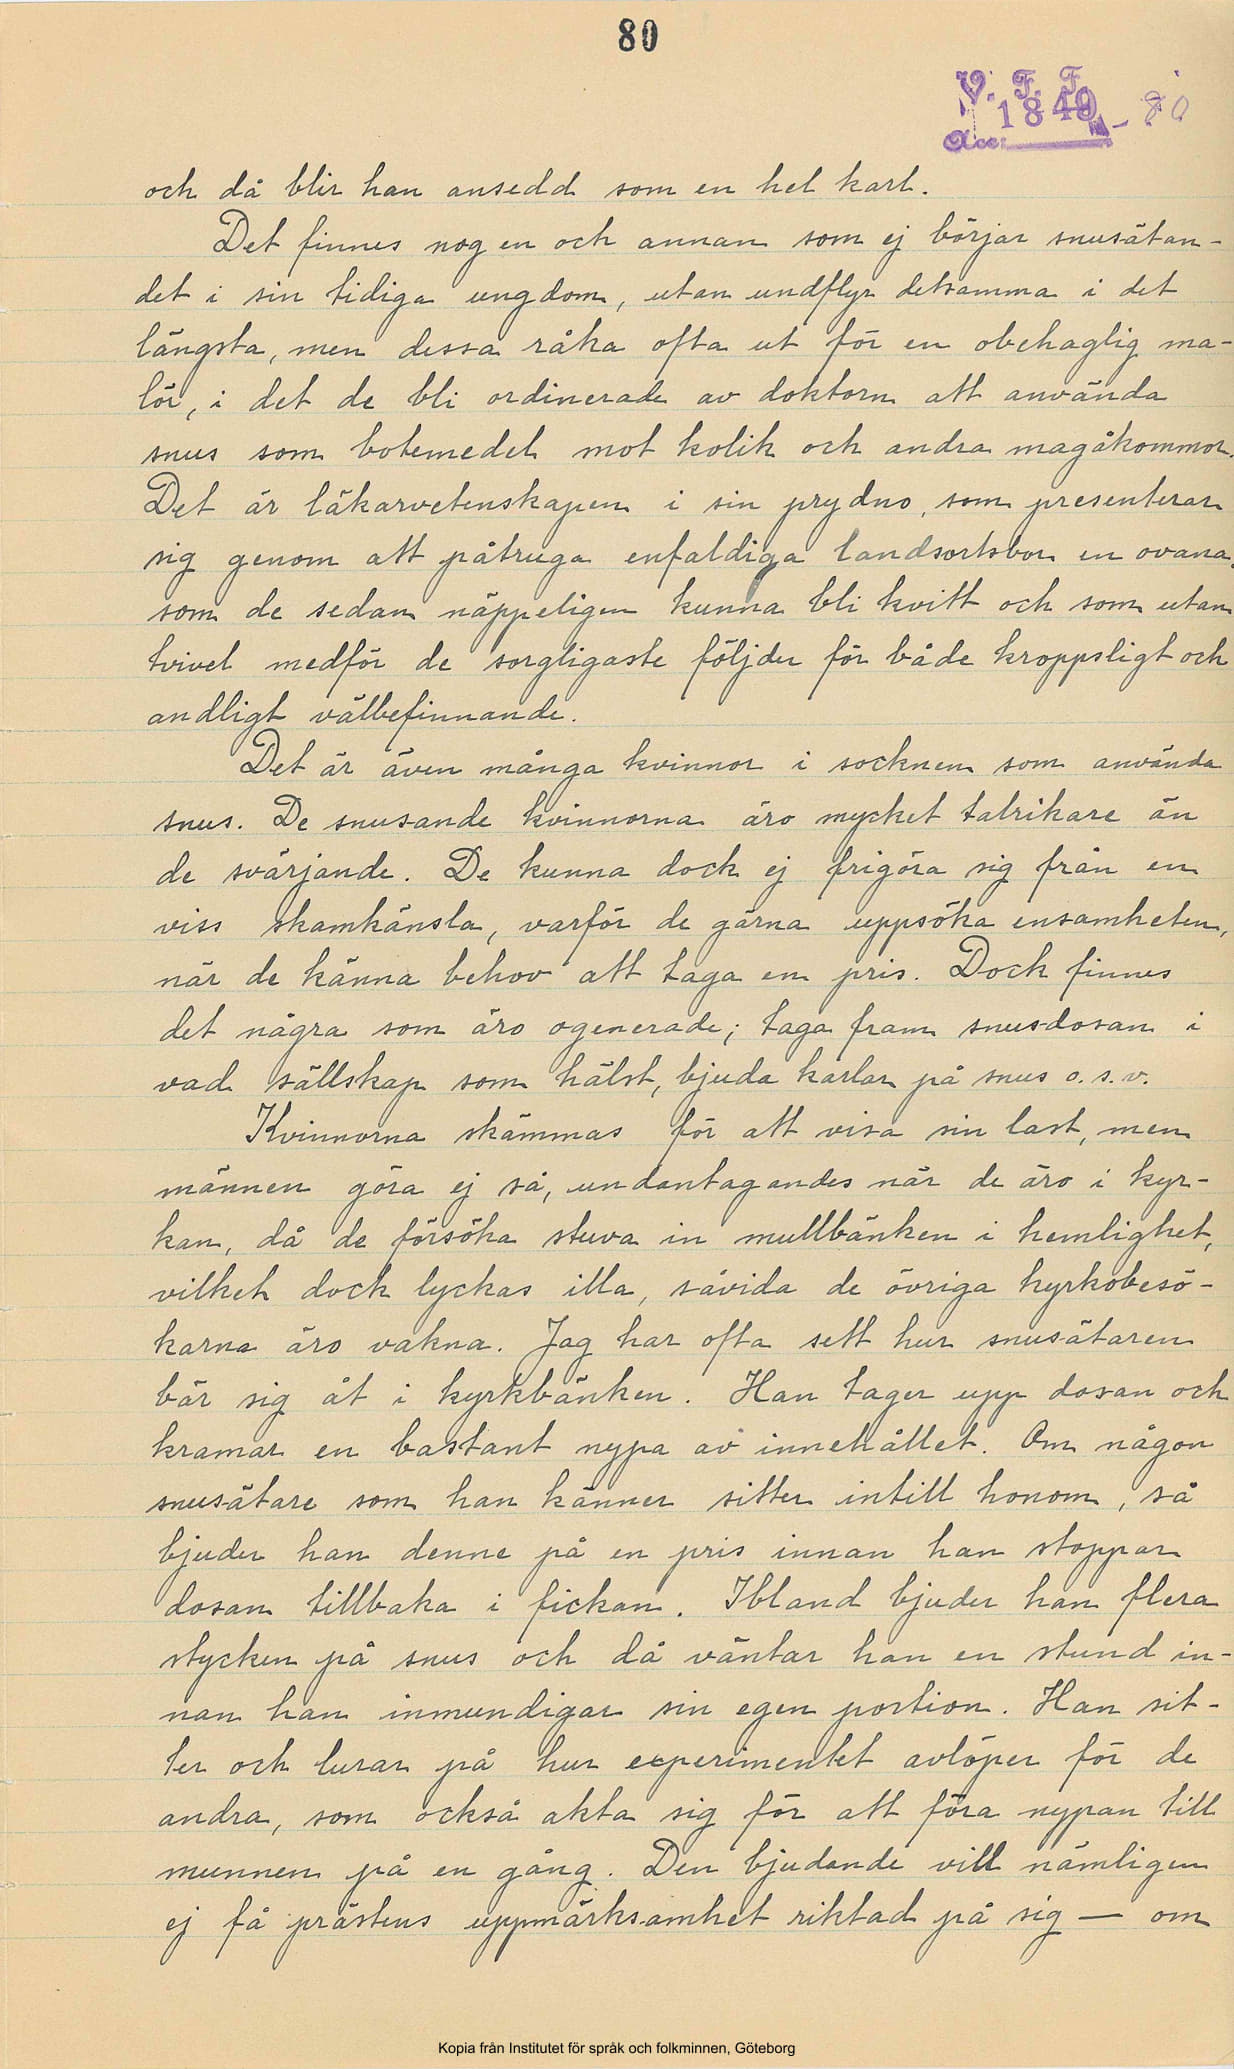 80
V. F. F.
1840 - 80
Acc:
och då blir han ansedd som en hel karl.
Det finnes nog en och annan som ej börjar snusätan-
det i sin tidiga ungdom, utan undflyr detsamma i det
längsta, men dessa råka ofta ut för en obehaglig ma-
lör, i det de bli ordinerade av doktorn att använda
snus som botemedel mot kolik och andra magåkommor.
Det är läkarvetenskapen i sin prydno, som presenterar
sig genom att påtruga enfaldiga landsortsbor en ovana,
som de sedan näppeligen kunna bli kvitt och som utan
tvivel medför de sorgligaste följder för både kroppsligt och
andligt välbefinnande.
Det är även många kvinnor i socknen som använda
snus. De snusande kvinnorna äro mycket talrikare än
de svärjande. De kunna dock ej frigöra sig från en
viss skamkänsla, varför de gärna uppsöka ensamheten,
när de känna behov att taga en pris. Dock finnes
det några som äro ogenerade; taga fram snusdosan i
vad sällskap som hälst, bjuda karlar på snus o.s.v.
Kvinnorna skämmas för att visa sin last, men
männen göra ej så, undantagandes när de äro i kyr-
kan, då de försöka stuva in mullbänken i hemlighet,
vilket dock lyckas illa, såvida de övriga kyrkobesö-
karna äro vakna. Jag har ofta sett hur snusätaren
bär sig åt i kyrkbänken. Han tager upp dosan och
kramar en bastant nypa av innehållet. Om någon
snusätare som han känner sitter intill honom, så
bjuder han denne på en pris innan han stoppar
dosan tillbaka i fickan. Ibland bjuder han flera
stycken på snus och då väntar han en stund in-
nan han inmundigar sin egen portion. Han sit-
ter och lurar på hur experimentet avlöper för de
andra, som också akta sig för att föra nypan till
munnen på en gång. Den bjudande vill nämligen
ej få prästens uppmärksamhet riktad på sig — om
Kopia från Institutet för språk och folkminnen, Göteborg